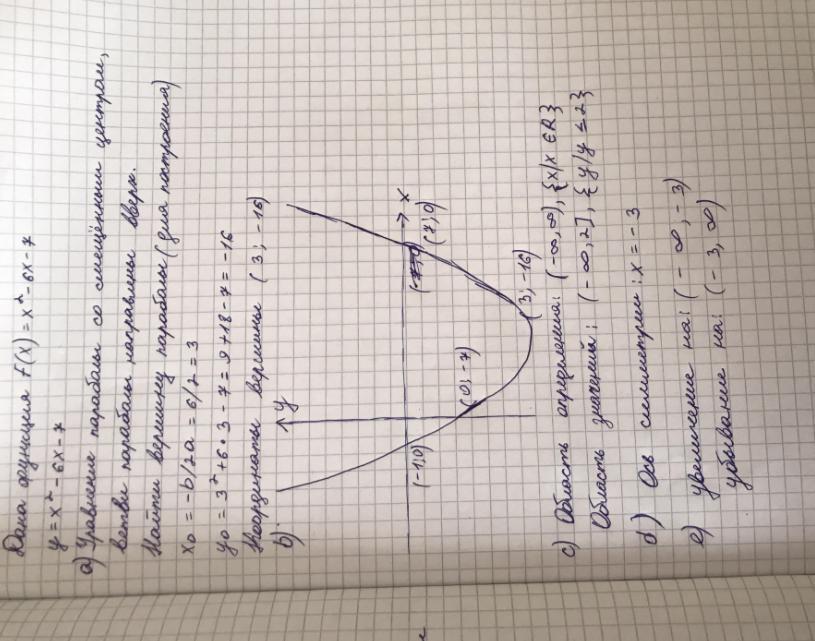 Дана функция F(x) = x² - 6x - 7
y = x² - 6x - 7
a) Уравнение параболы со смещённым центром,
ветви параболы направлены вверх.
Найти вершину параболы (для построения)
x0 = -b/2a = 6/2 = 3
y0 = 3² + 6•3 - 7 = 9 + 18 - 7 = -16
Координаты вершины (3; -16)
b)
y
x
(-1;0)
(0; -7)
(7;0)
(3; -16)
c) Область определения: (-∞, ∞), {x/x ∈ R}
Область значений: (-∞, 2], {y/y ≤ 2}
d) Ось симметрии: x = -3
e) увеличение на: (-∞, -3)
убывание на: (-3, ∞)